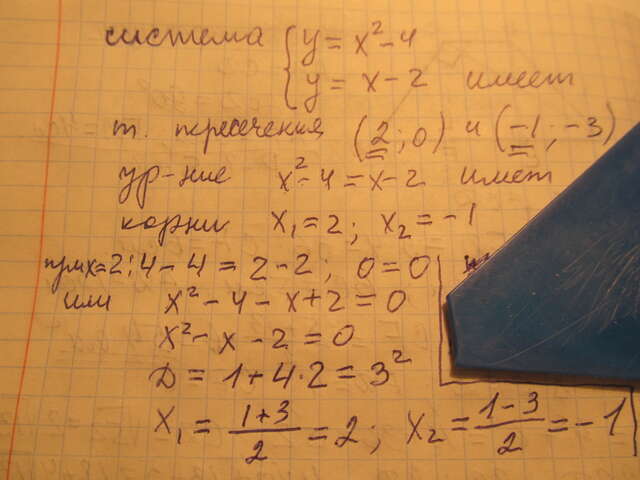 система { y = x² - 4
y = x - 2 имеет
т. пересечения (2; 0) и (-1; -3)
ур-ние x² - 4 = x - 2 имеет
корни x₁ = 2; x₂ = -1
при x=2: 4 - 4 = 2 - 2; 0 = 0
или x² - 4 - x + 2 = 0
x² - x - 2 = 0
D = 1 + 4·2 = 3²
x₁ = (1+3)/2 = 2; x₂ = (1-3)/2 = -1